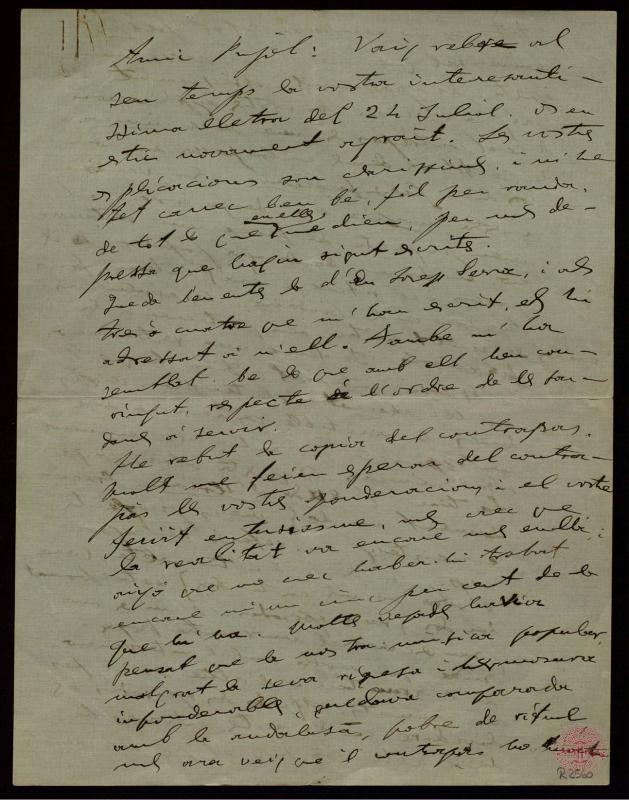 Amic Pujol: Vaig rebre al
seu temps la vostra interesantí-
ssima lletra del 24 Juliol. Os en
estic novament agrait. Les vostres
esplicacions son claríssimes, i m'he
fet carrec ben bé, fil per randa,
de tot lo que en elles me dieu, per mes de-
pressa que hagin sigut escrites.
Queda bé lo d'En Josep Serra, i als
tres o cuatre que m'han escrit, els hi
adressat a n'ell. Tambe m'ha
semblat be lo que amb ell heu con-
vingut, respecte a l'ordre de les
a seguir.
He rebut la copia del contrapas.
Molt me feien esperar del contra-
pas les vostres ponderacions i el vostre
entusiasme, mes crec que
la realitat va encare mes enllà;
aixó que no crec haber-hi trobat
encare ni un cinc per cent de lo
que hi ha. Moltes vegades havia
pensat que la nostra música popular,
malgrat la seva riquesa i hermosura
imponderables, quedava comparada
amb la andalusa, pobre de ritme
mes ara veig que el contrapas no
R.2560